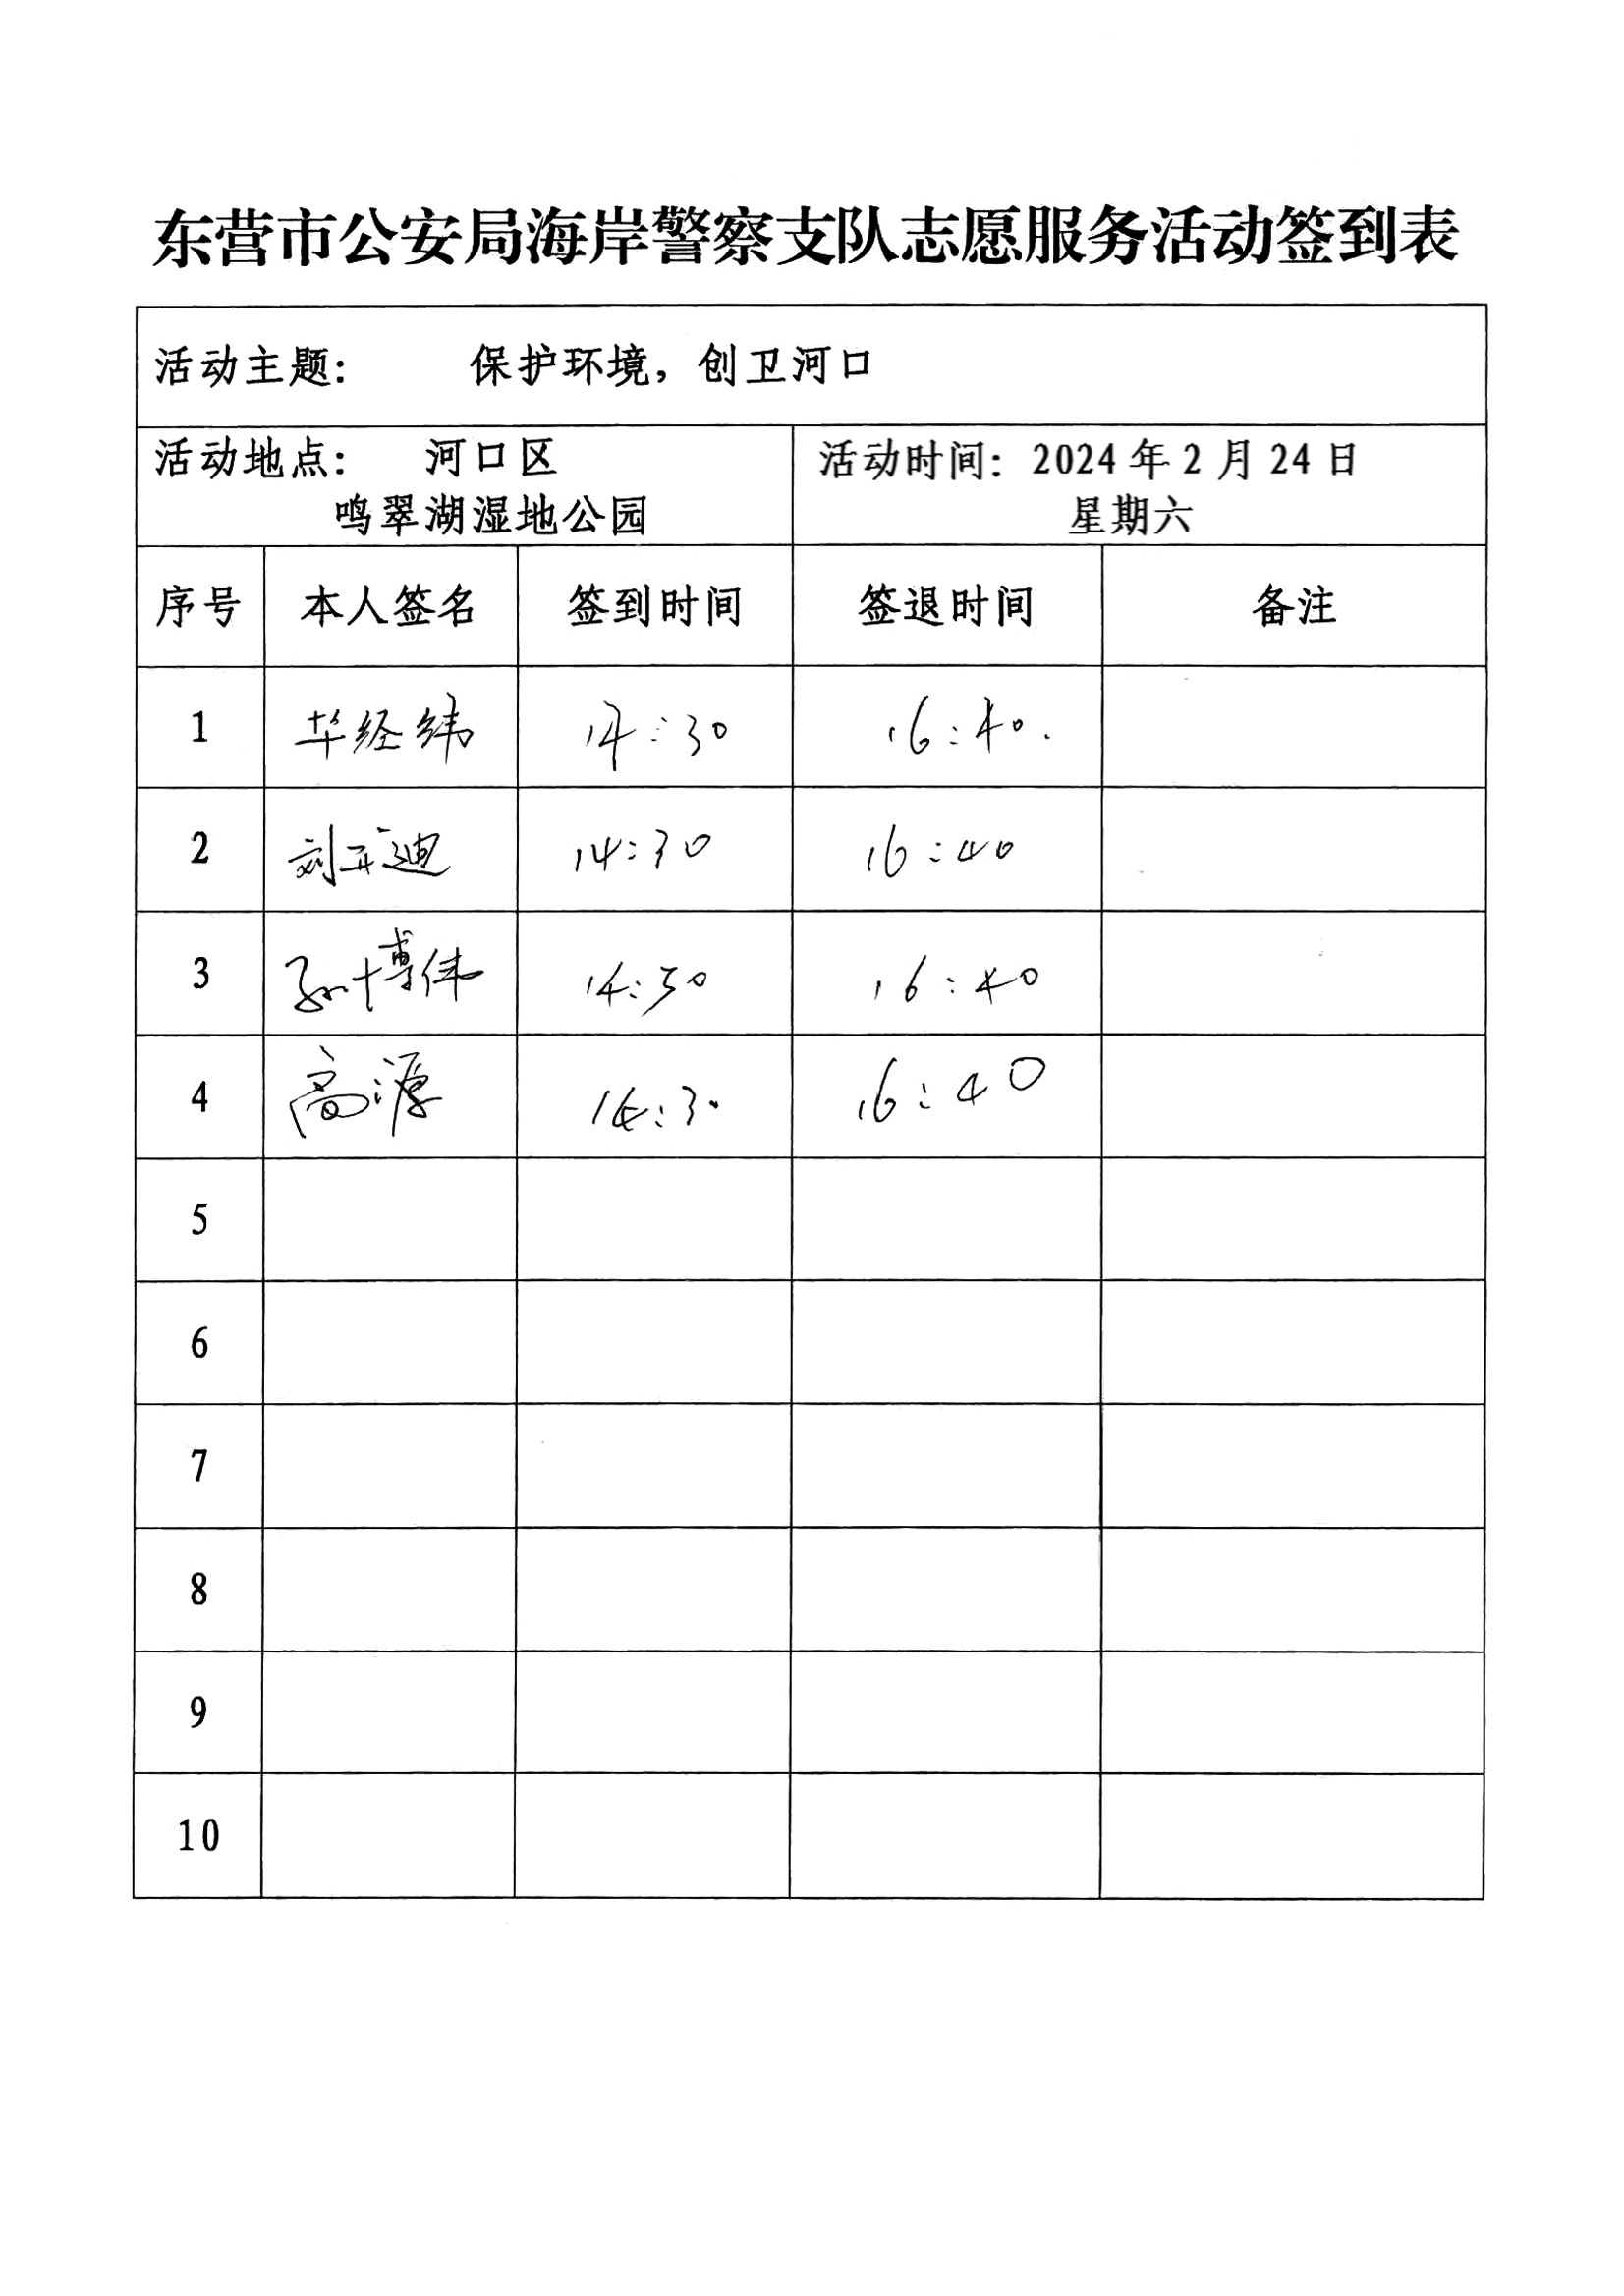 东营市公安局海岸警察支队志愿服务活动签到表
活动主题: 保护环境，创卫河口
活动地点: 河口区
鸣翠湖湿地公园
活动时间: 2024年2月24日
星期六
序号 本人签名 签到时间 签退时间 备注
1 华经纬 14:30 16:40.
2 刘开迪 14:30 16:40
3 孙博伟 14:30 16:40
4 高源 14:30 16:40
5
6
7
8
9
10